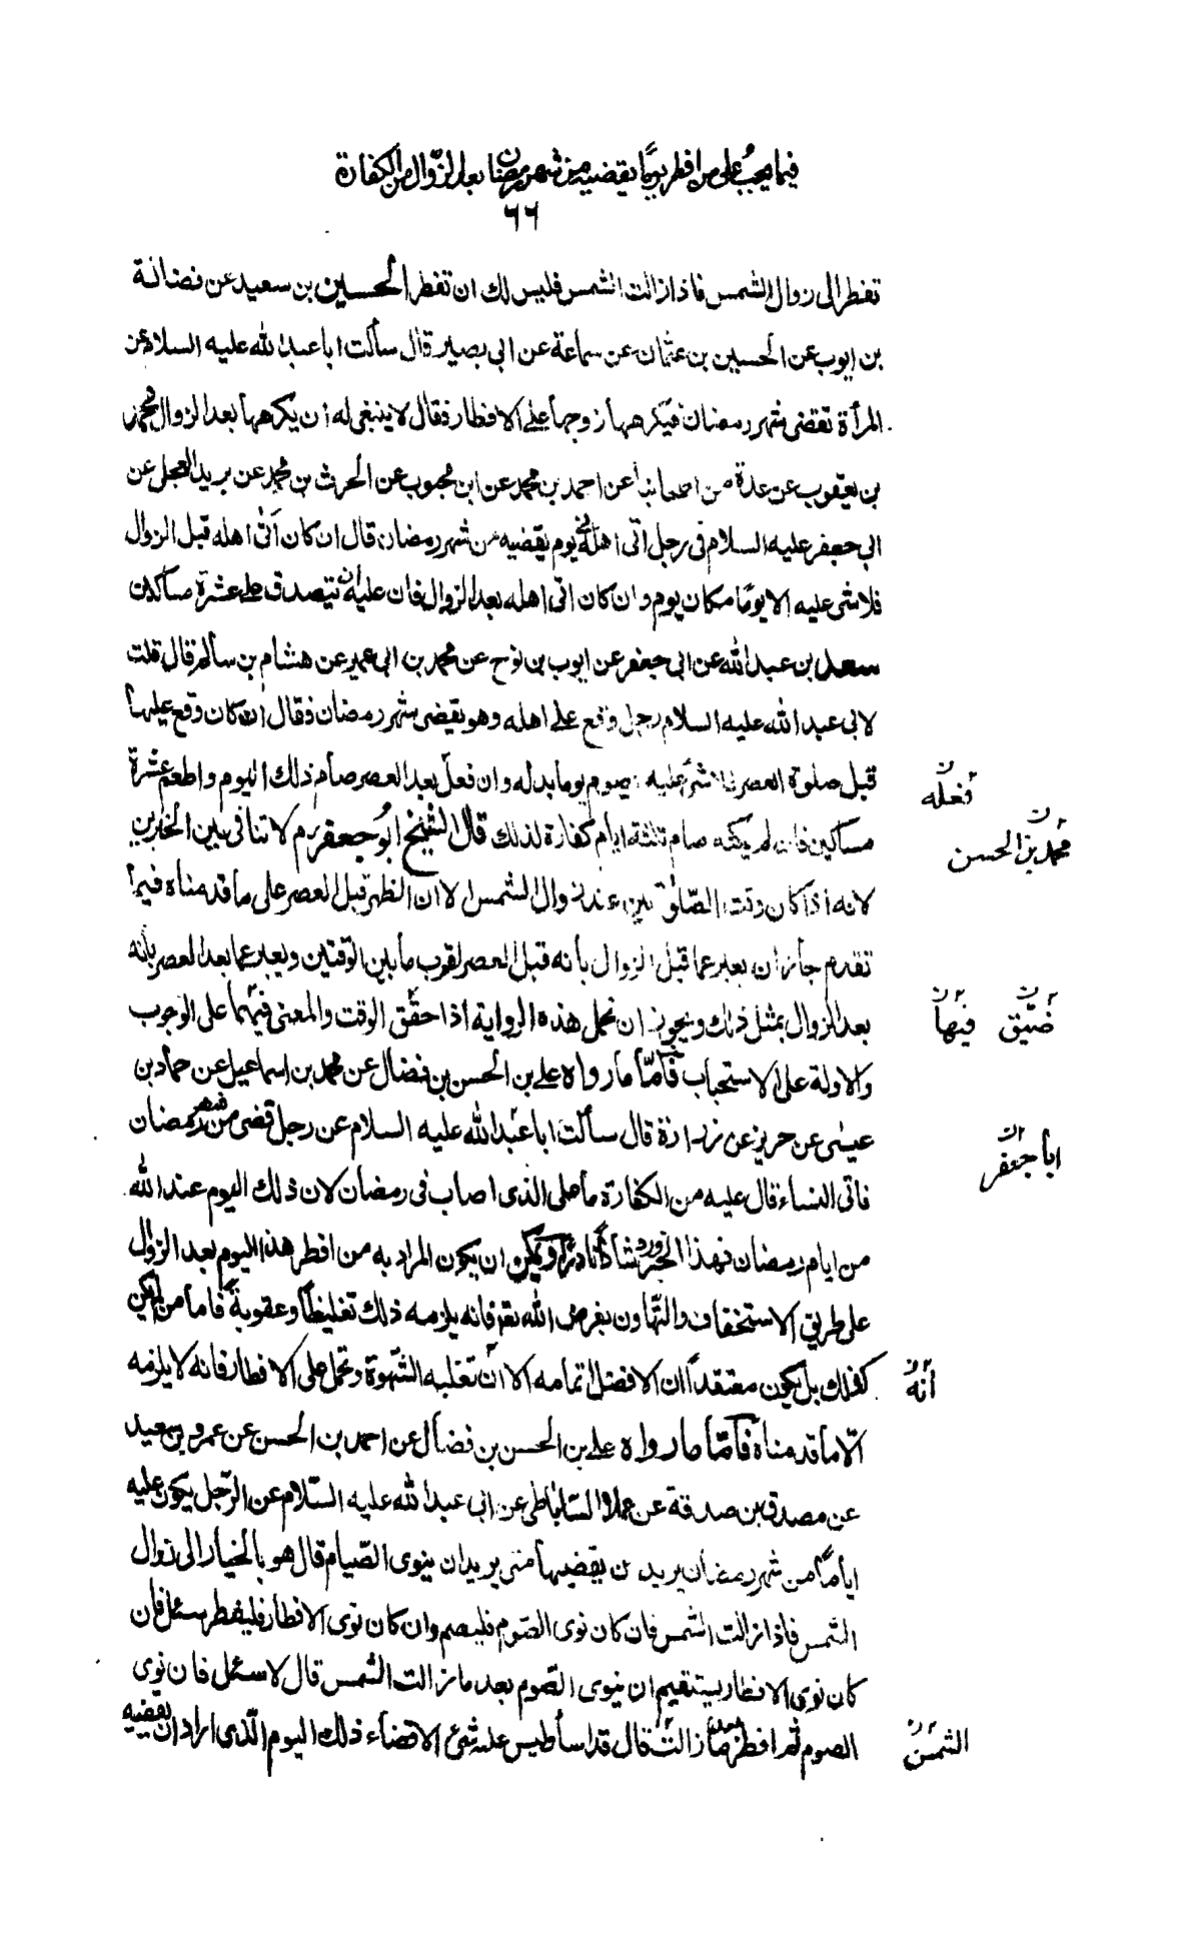 فيما يجب على من افطر يومًا يقضيه من شهر رمضان بعد الزّوال من الكفارة
٦٦
تفطر الى زوال الشمس فاذا زالت الشمس فليس لك ان تفطر الحسين بن سعيد عن فضالة
بن ايوب عن الحسين بن عثمان عن سماعة عن ابى بصير قال سألت ابا عبد الله عليه السلام عن
المرأة تقضى شهر رمضان فيكرهها زوجها على الافطار فقال لا ينبغى له ان يكرهها بعد الزوال محمد
بن يعقوب عن عدة من اصحابنا عن احمد بن محمد عن ابن محبوب عن الحرث بن محمد عن بريد العجلى عن
ابى جعفر عليه السلام فى رجل اتى اهله فى يوم يقضيه من شهر رمضان قال ان كان اتى اهله قبل الزوال
فلا شىء عليه الا يومًا مكان يوم وان كان اتى اهله بعد الزوال فان عليه ان يتصدق على عشرة مساكين
سعد بن عبد الله عن ابى جعفر عن ايوب بن نوح عن محمد بن ابى عمير عن هشام بن سالم قال قلت
لابى عبد الله عليه السلام رجل وقع على اهله وهو يقضى شهر رمضان فقال ان كان وقع عليها
قبل صلوة العصر فلا شىء عليه يصوم يوما بدله وان فعل بعد العصر صام ذلك اليوم واطعم عشرة
فعله ن
مساكين فان لم يمكنه صام ثلثة ايام كفارة لذلك قال الشيخ ابو جعفر ره لا تنافى بين الخبرين
محمد بن الحسن ن
لانه اذا كان وقت الصّلوتين عند زوال الشمس الا ان الظهر قبل العصر على ما قدمناه فيما
تقدم جاز ان يعبر عما قبل الزوال بأنه قبل العصر لقرب ما بين الوقتين ويعبر عما بعد العصر بأنه
بعد الزوال بمثل ذلك ويجوز ان نحمل هذه الرواية اذا حقق الوقت والمعنى فيهما على الوجوب
ضيّق فيها
والاولة على الاستحباب فأمّا ما رواه على بن الحسن بن فضال عن محمد بن اسماعيل عن حماد بن
عيسى عن حريز عن زرارة قال سألت ابا عبد الله عليه السلام عن رجل قضى من شهر رمضان
ابا جعفر
فاتى النساء قال عليه من الكفارة ما على الذى اصاب فى رمضان لان ذلك اليوم عند الله
من ايام رمضان فهذا الخبر ورد شاذًا نادرًا ويمكن ان يكون المراد به من افطر هذا اليوم بعد الزوال
على طريق الاستخفاف والتّهاون بفرض الله تعم فانه يلزمه ذلك تغليظًا وعقوبةً فأما من لم يكن
كذلك بل يكون معتقدًا ان الافضل اتمامه الا ان تغلبه الشّهوة وتحمل على الافطار فانه لا يلزمه
أنّه
الّا ما قدمناه فأمّا ما رواه على بن الحسن بن فضال عن احمد بن الحسن عن عمرو بن سعيد
عن مصدق بن صدقة عن عمار الساباطى عن ابى عبد الله عليه السّلام عن الرّجل يكون عليه
ايامًا من شهر رمضان يريد ان يقضيها متى يريد ان ينوى الصّيام قال هو بالخيار الى زوال
الشمس فاذا زالت الشمس فان كان نوى الصّوم فليصم وان كان نوى الافطار فليفطر سئل فان
كان نوى الافطار يستقيم ان ينوى الصّوم بعد ما زالت الشمس قال لا سئل فان نوى
الصوم ثم افطر بعد ما زالت قال قد اسأ وليس عليه شىء الا قضاء ذلك اليوم الّذى اراد ان يقضيه
الشمسُ